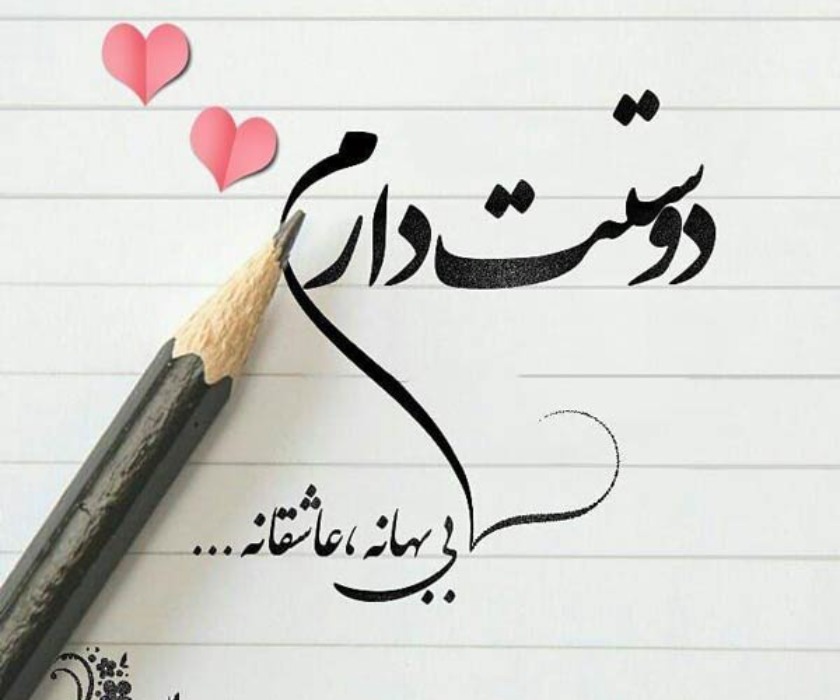 دوستت دارم
بی بهانه ،عاشقانه ...